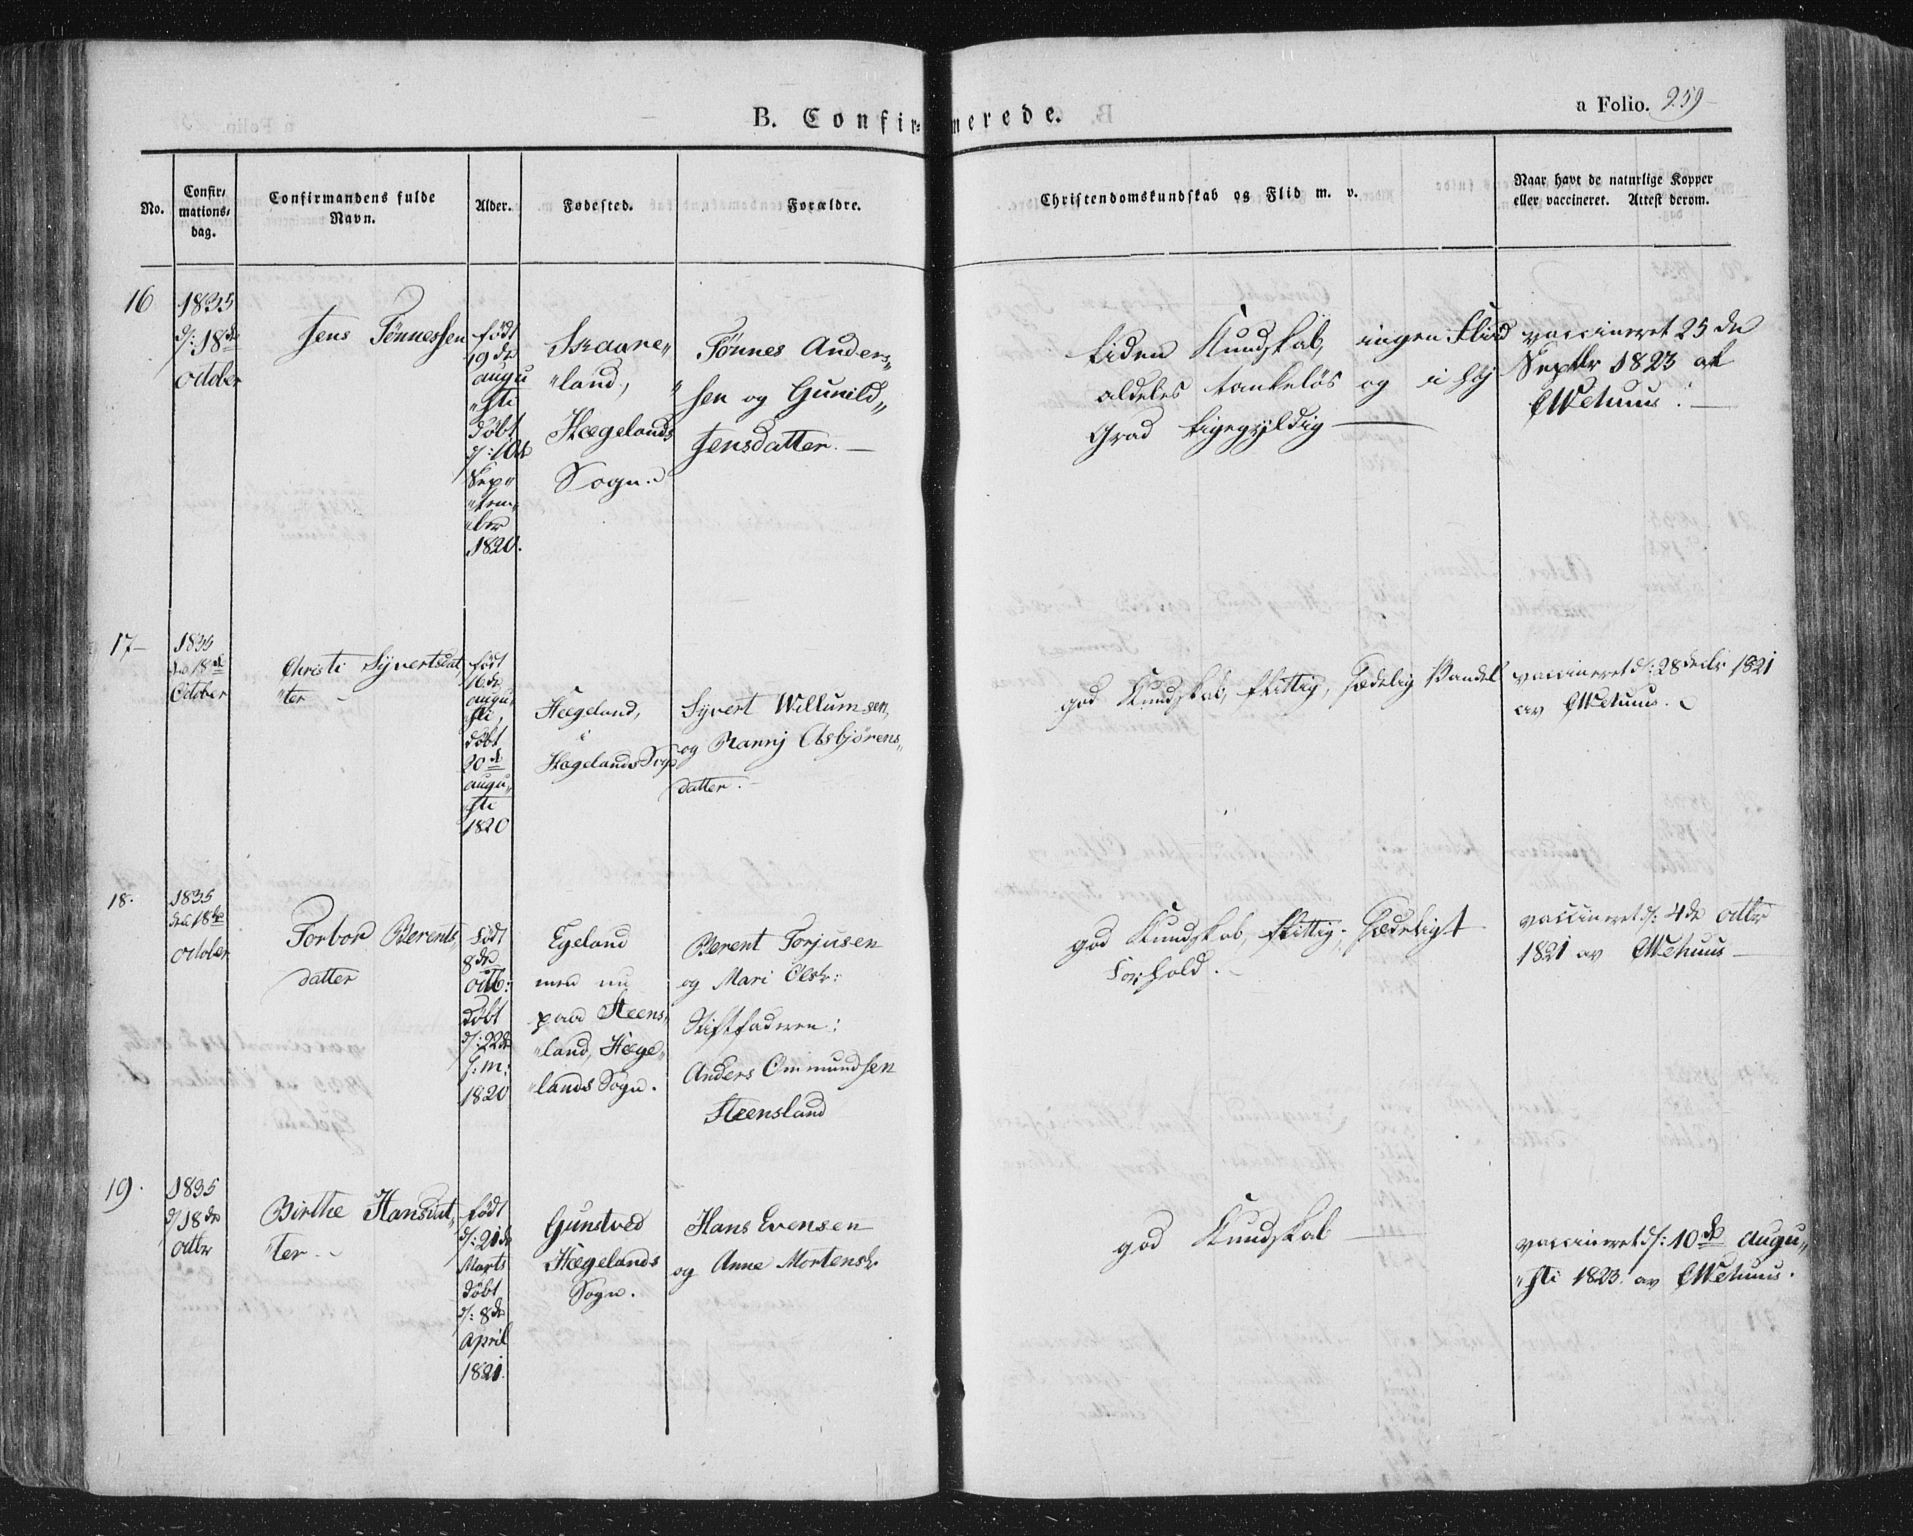 B. Confirmerede.
a Folio. 259
No.
Confir-
mations-
dag.
Confirmandens fulde
Navn.
Alder.
Fødested.
Forældre.
Christendomskundskab og Flid m. v.
Naar havt de naturlige Kopper
eller vaccineret. Attest derom.
16
1835
d: 18de
October
Jens Tønnessen
født
19de
augu
"sti
døbt
d: 10de
Sep"
"tem"
"ber
1820.
Skaare"
"land,
Hægelands
Sogn.
Tønnes Anders"
sen og Gunild"
Jensdatter.
liden Kundskab, ingen Fliid
aldeles tankeløs og i høj
Grad ligegyldig
vaccineret 25de
Septbr 1823 af
17
1835
18de
October
Christi Syvertsdat"
"ter
født
16de
augu"
"sti,
døbt
20de
augu"
"sti
1820
Hægeland,
Hægelands Sogn
Syvert Willumsen,
og Ranni Asbjørens"
datter.
god Kundskab, flittig, sædelig Vandel
vaccineret d: 28 decbr 1821
av
18.
1835
18de
October
Torbor Berents"
datter
født
8de
octb:
døbt
d: 22de
s: m:
1820
Egeland
men nu
paa Steens"
"land, Hæge"
"lands Sogn.
Berent Torjusen
og Mari Olsdr:
Stiftfaderen:
Anders Ommundsen
Steensland
god Kundskab, flittig, sædeligt
Forhold.
vaccineret d: 4de octbr
1821 av
19.
1835
d: 18de
octbr
Birthe Hansdat"
"ter
født
d: 21de
Marts
døbt
d: 8de
April
1821.
Gunstved
Hægelands
Sogn.
Hans Evensen
og Anne Mortensdr.
god Kundskab
vaccineret d: 10de augu"
"sti 1823 av